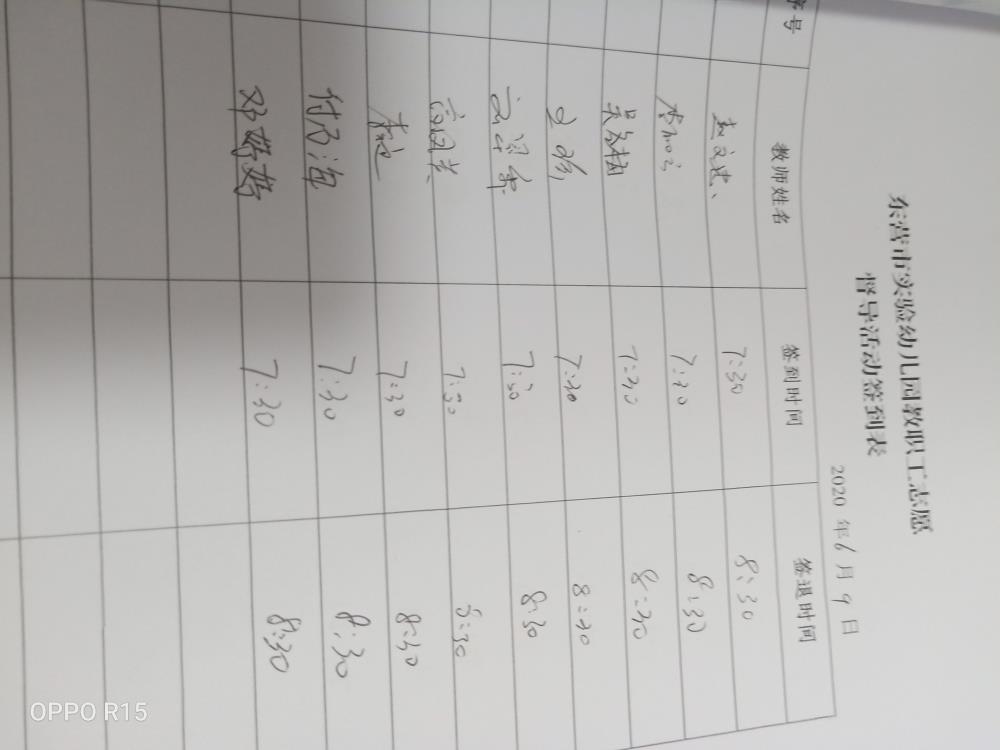 东营市实验幼儿园教职工志愿
督导活动签到表
2020 年 6 月 9 日
序号 教师姓名 签到时间 签退时间
7:30 8:30
7:30 8:30
7:30 8:30
王 7:30 8:30
7:30 8:30
7:30 8:30
李 7:30 8:30
付乃海 7:30 8:30
邓婷婷 7:30 8:30
OPPO R15